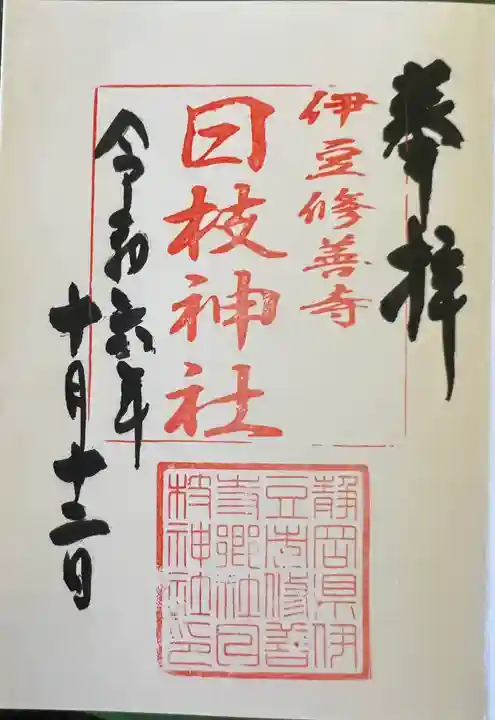 奉拝
伊豆修善寺
日枝神社
令和六年
十月十三日
静岡県伊
豆市修善
寺郷社日
枝神社印